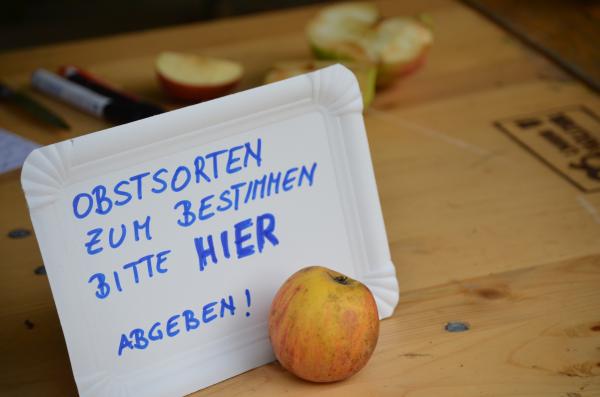 OBSTSORTEN
ZUM BESTIMMEN
BITTE HIER
ABGEBEN!